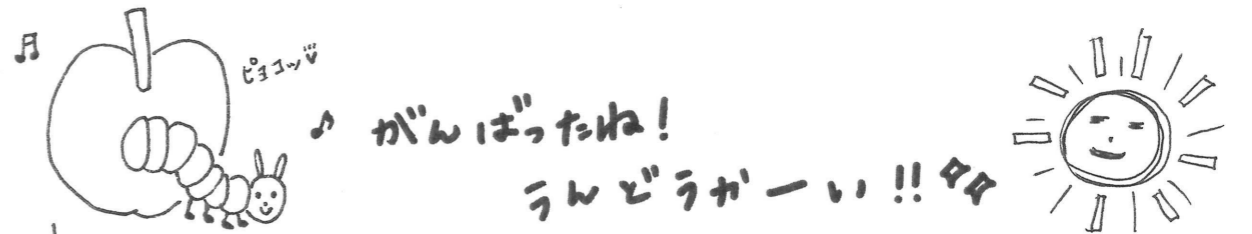 ピョコッ
がんばったね!
うんどうかーい!!